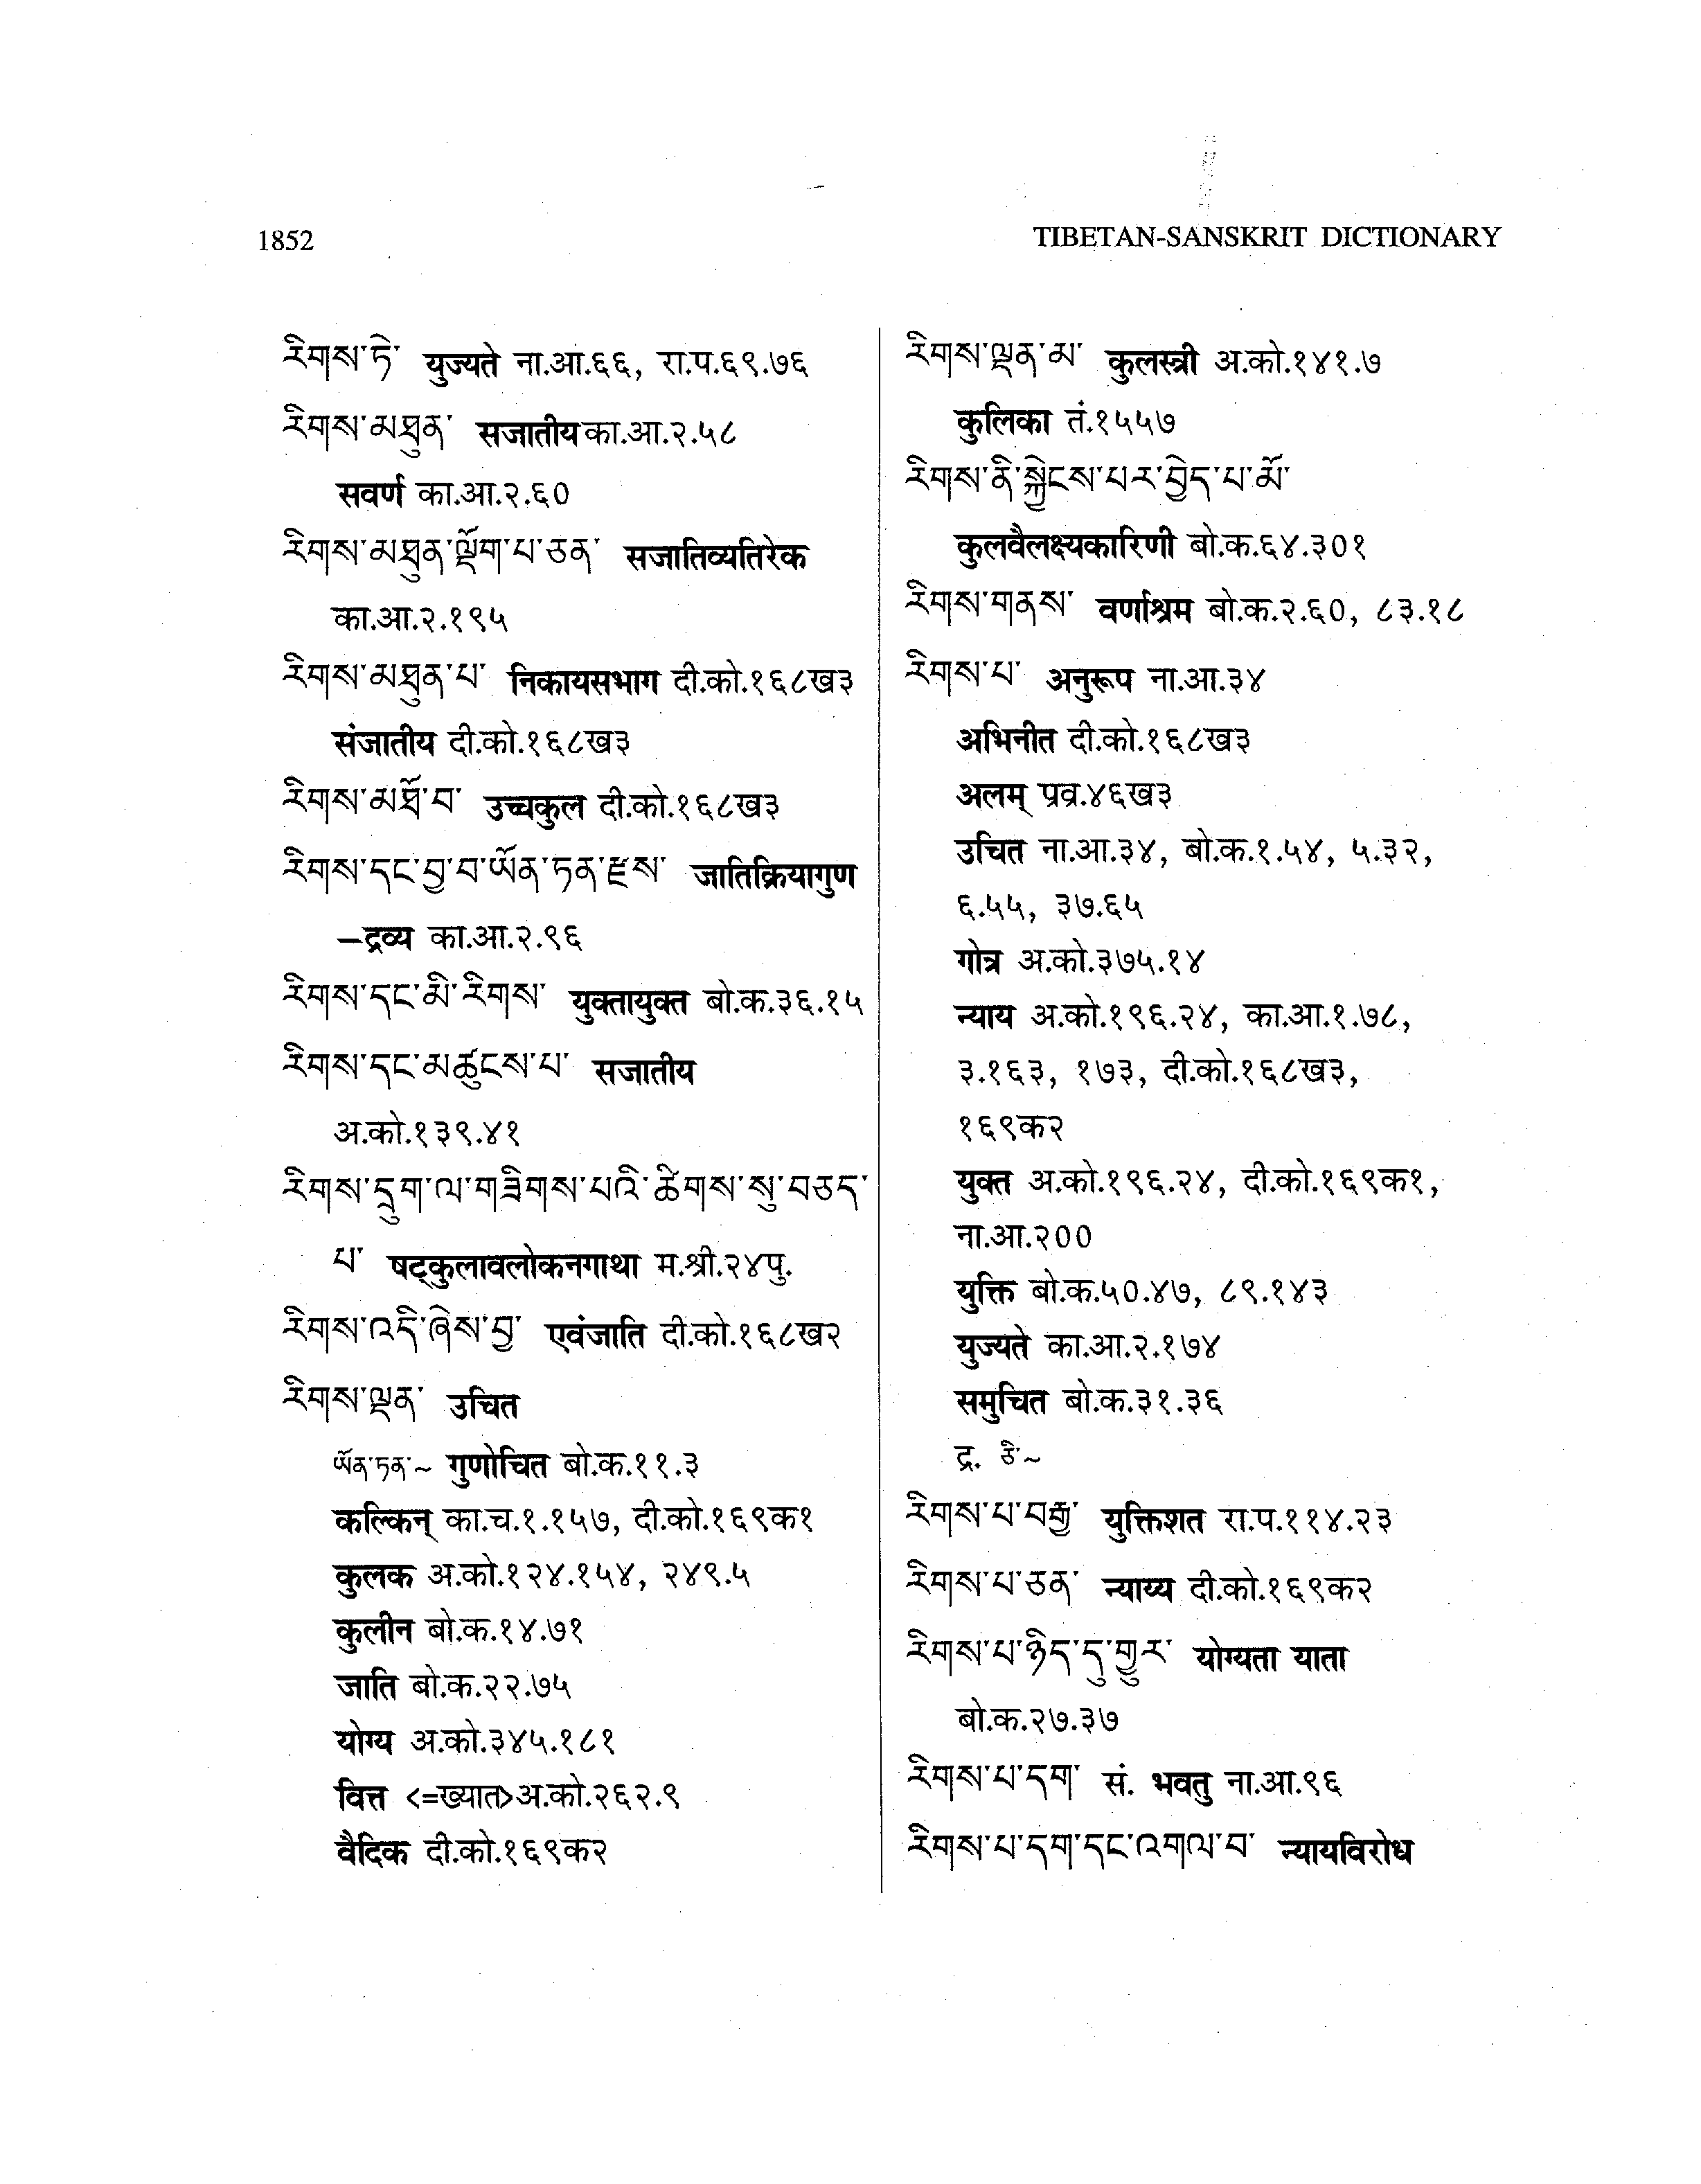 1852
TIBETAN-SANSKRIT DICTIONARY
རིགས་ཏེ་ युज्यते ना.आ.६६, रा.प.६९.७६
རིགས་མཐུན་ सजातीय का.आ.२.५८
सवर्ण का.आ.२.६०
རིགས་མཐུན་ལྡོག་པ་ཅན་ सजातिव्यतिरेक
का.आ.२.१९५
རིགས་མཐུན་པ་ निकायसभाग दी.को.१६८ख३
संजातीय दी.को.१६८ख३
རིགས་མཐོ་བ་ उच्चकुल दी.को.१६८ख३
རིགས་དང་བྱ་བ་ཡོན་ཏན་རྫས་ जातिक्रियागुण
–द्रव्य का.आ.२.९६
རིགས་དང་མི་རིགས་ युक्तायुक्त बो.क.३६.१५
རིགས་དང་མཚུངས་པ་ सजातीय
अ.को.१३९.४१
རིགས་དྲུག་ལ་གཟིགས་པའི་ཚིགས་སུ་བཅད་
པ་ षट्कुलावलोकनगाथा म.श्री.२४पु.
རིགས་འདི་ཞེས་བྱ་ एवंजाति दी.को.१६८ख२
རིགས་ལྡན་ उचित
ཡོན་ཏན་~ गुणोचित बो.क.११.३
कल्किन् का.च.१.१५७, दी.को.१६९क१
कुलक अ.को.१२४.१५४, २४९.५
कुलीन बो.क.१४.७१
जाति बो.क.२२.७५
योग्य अ.को.३४५.१८१
वित्त <=ख्यात>अ.को.२६२.९
वैदिक दी.को.१६९क२
རིགས་ལྡན་མ་ कुलस्त्री अ.को.१४१.७
कुलिका तं.१५५७
རིགས་ནི་སྐྱེངས་པར་བྱེད་པ་མོ་
कुलवैलक्ष्यकारिणी बो.क.६४.३०१
རིགས་གནས་ वर्णाश्रम बो.क.२.६०, ८३.१८
རིགས་པ་ अनुरूप ना.आ.३४
अभिनीत दी.को.१६८ख३
अलम् प्रव्र.४६ख३
उचित ना.आ.३४, बो.क.१.५४, ५.३२,
६.५५, ३७.६५
गोत्र अ.को.३७५.१४
न्याय अ.को.१९६.२४, का.आ.१.७८,
३.१६३, १७३, दी.को.१६८ख३,
१६९क२
युक्त अ.को.१९६.२४, दी.को.१६९क१,
ना.आ.२००
युक्ति बो.क.५०.४७, ८९.१४३
युज्यते का.आ.२.१७४
समुचित बो.क.३१.३६
द्र. ཅི་~
རིགས་པ་བརྒྱ་ युक्तिशत रा.प.११४.२३
རིགས་པ་ཅན་ न्याय्य दी.को.१६९क२
རིགས་པ་ཉིད་དུ་གྱུར་ योग्यता याता
बो.क.२७.३७
རིགས་པ་དག་ सं. भवतु ना.आ.९६
རིགས་པ་དག་དང་འགལ་བ་ न्यायविरोध